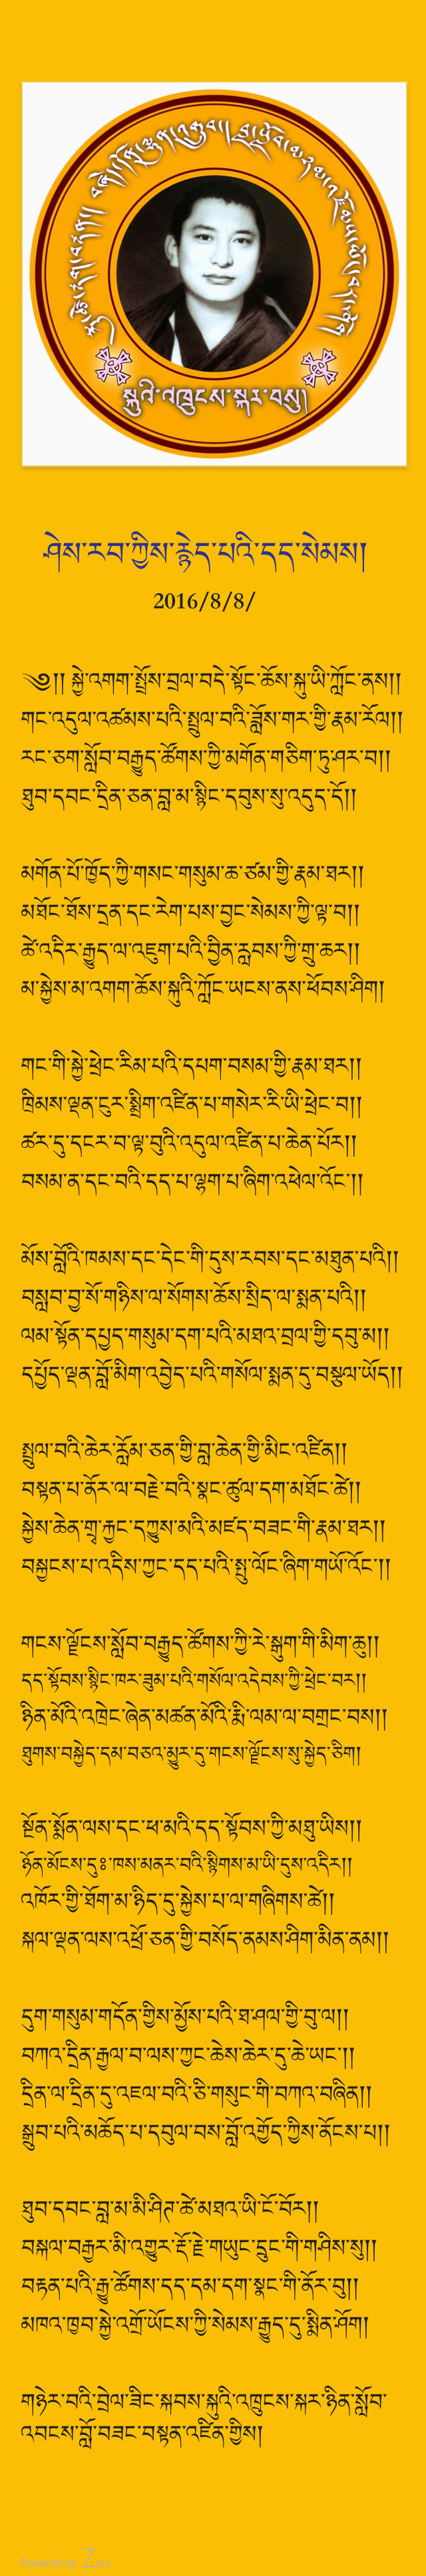 སྐུའི་འཁྲུངས་སྐར་བསུ།
ཤེས་རབ་ཀྱིས་རྙེད་པའི་དད་སེམས།
2016/8/8/
༄།། སྐྱེ་འགག་སྤྲོས་བྲལ་བདེ་སྟོང་ཆོས་སྐུ་ཡི་ཀློང་ནས།།
གང་འདུལ་འཚམས་པའི་སྤྲུལ་བའི་ཟློས་གར་གྱི་རྣམ་རོལ།།
རང་ཅག་སློབ་བརྒྱུད་ཚོགས་ཀྱི་མགོན་གཅིག་ཏུ་ཤར་བ།།
ཐུབ་དབང་དྲིན་ཅན་བླ་མ་སྙིང་དབུས་སུ་འདུད་དོ།།
མགོན་པོ་ཁྱོད་ཀྱི་གསང་གསུམ་ཆ་ཙམ་གྱི་རྣམ་ཐར།།
མཐོང་ཐོས་དྲན་དང་རེག་པས་བྱང་སེམས་ཀྱི་ལྟ་བ།།
ཚེ་འདིར་རྒྱུད་ལ་འཇུག་པའི་བྱིན་རླབས་ཀྱི་གྲུ་ཆར།།
མ་སྐྱེས་མ་འགག་ཆོས་སྐུའི་ཀློང་ཡངས་ནས་ཕོབས་ཤིག།
གང་གི་སྐྱེ་ཕྲེང་རིམ་པའི་དཔག་བསམ་གྱི་རྣམ་ཐར།།
ཁྲིམས་ལྡན་ངུར་སྨྲིག་འཛིན་པ་གསེར་རི་ཡི་ཕྲེང་བ།།
ཚར་དུ་དངར་བ་ལྟ་བུའི་འདུལ་འཛིན་པ་ཆེན་པོར།།
བསམ་ན་དང་བའི་དད་པ་ལྷག་པ་ཞིག་འཕེལ་འོང་།།
མོས་བློའི་ཁམས་དང་དེང་གི་དུས་རབས་དང་མཐུན་པའི།།
བསླབ་བྱ་སོ་གཉིས་ལ་སོགས་ཆོས་སྲིད་ལ་སྨན་པའི།།
ལམ་སྟོན་དཔྱད་གསུམ་དག་པའི་མཐའ་བྲལ་གྱི་དབུ་མ།།
དཔྱོད་ལྡན་བློ་མིག་འབྱེད་པའི་གསོལ་སྨན་དུ་བསྩལ་ཡོད།།
སྤྲུལ་བའི་ཆེར་རློམ་ཅན་གྱི་བླ་ཆེན་གྱི་མིང་འཛིན།།
བསྟན་པ་ནོར་ལ་བརྗེ་བའི་སྣང་ཚུལ་དག་མཐོང་ཚེ།།
སྐྱེས་ཆེན་གྲྭ་རྐྱང་དཀྱུས་མའི་མཛད་བཟང་གི་རྣམ་ཐར།།
བསྐྱངས་པ་འདིས་ཀྱང་དད་པའི་སྤུ་ལོང་ཞིག་གཡོ་འོང་།།
གངས་ལྗོངས་སློབ་བརྒྱུད་ཚོགས་ཀྱི་རེ་སྒུག་གི་མིག་ཆུ།།
དད་སྟོབས་སྙིང་ཁར་ཟུམ་པའི་གསོལ་འདེབས་ཀྱི་ཕྲེང་བར།།
ཉིན་མོའི་འཁྲེང་ཞེན་མཚན་མོའི་རྨི་ལམ་ལ་བགྲང་བས།།
ཐུགས་བསྐྱེད་དམ་བཅའ་མྱུར་དུ་གངས་ལྗོངས་སུ་སྐྱེད་ཅིག།
སྔོན་སྨོན་ལས་དང་ཕ་མའི་དད་སྟོབས་ཀྱི་མཐུ་ཡིས།།
ཉོན་མོངས་དུ༔་ཁས་མནར་བའི་སྙིགས་མ་ཡི་དུས་འདིར།།
འཁོར་གྱི་ཐོག་མ་ཉིད་དུ་སྐྱེས་པ་ལ་གཞིགས་ཚེ།།
སྐལ་ལྡན་ལས་འཕྲོ་ཅན་གྱི་བསོད་ནམས་ཤིག་མིན་ནམ།།
དུག་གསུམ་གདོན་གྱིས་མྱོས་པའི་ཐ་ཤལ་གྱི་བུ་ལ།།
བཀའ་དྲིན་རྒྱལ་བ་ལས་ཀྱང་ཆེས་ཆེར་དུ་ཆེ་ཡང་།།
དྲིན་ལ་དྲིན་དུ་འཇལ་བའི་ཅི་གསུང་གི་བཀའ་བཞིན།།
སྒྲུབ་པའི་མཆོད་པ་དབུལ་བས་བློ་འགྱོད་ཀྱིས་ནོངས་པ།།
ཐུབ་དབང་བླ་མ་མི་ཤིཊ་ཚེ་མཐའ་ཡི་ངོ་བོར།།
བསྐལ་བརྒྱར་མི་འགྱུར་རྡོ་རྗེ་གཡུང་དྲུང་གི་གཤིས་སུ།།
བརྟན་པའི་རྒྱུ་ཚོགས་དད་དམ་དག་སྣང་གི་ནོར་བུ།།
མཁའ་ཁྱབ་སྐྱེ་འགྲོ་ཡོངས་ཀྱི་སེམས་རྒྱུད་དུ་སྨིན་ཤོག།
གཉེར་བའི་བྲེལ་ཟིང་སྐབས་སྐུའི་འཁྲུངས་སྐར་ཉིན་སློབ་
འབངས་བློ་བཟང་བསྟན་འཛིན་གྱིས།